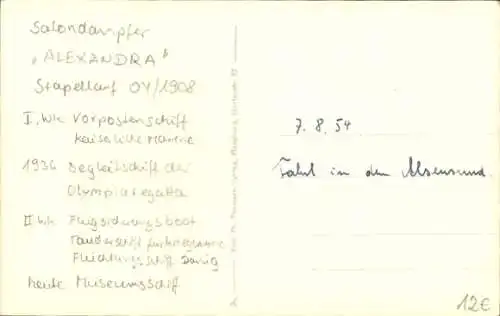 Salondampfer
"ALEXANDRA"
Stapellauf 04/1908
I. WK Vorpostenschiff
Kaiserliche Marine
1936 Begleitschiff der
Olympiaregatta
II WK Flugsicherungsboot
Taucherschiff für Kriegsmarine
Flüchtlingsschiff Danzig
heute Museumsschiff
7. 8. 54
Fahrt in den Alsensund.
12€